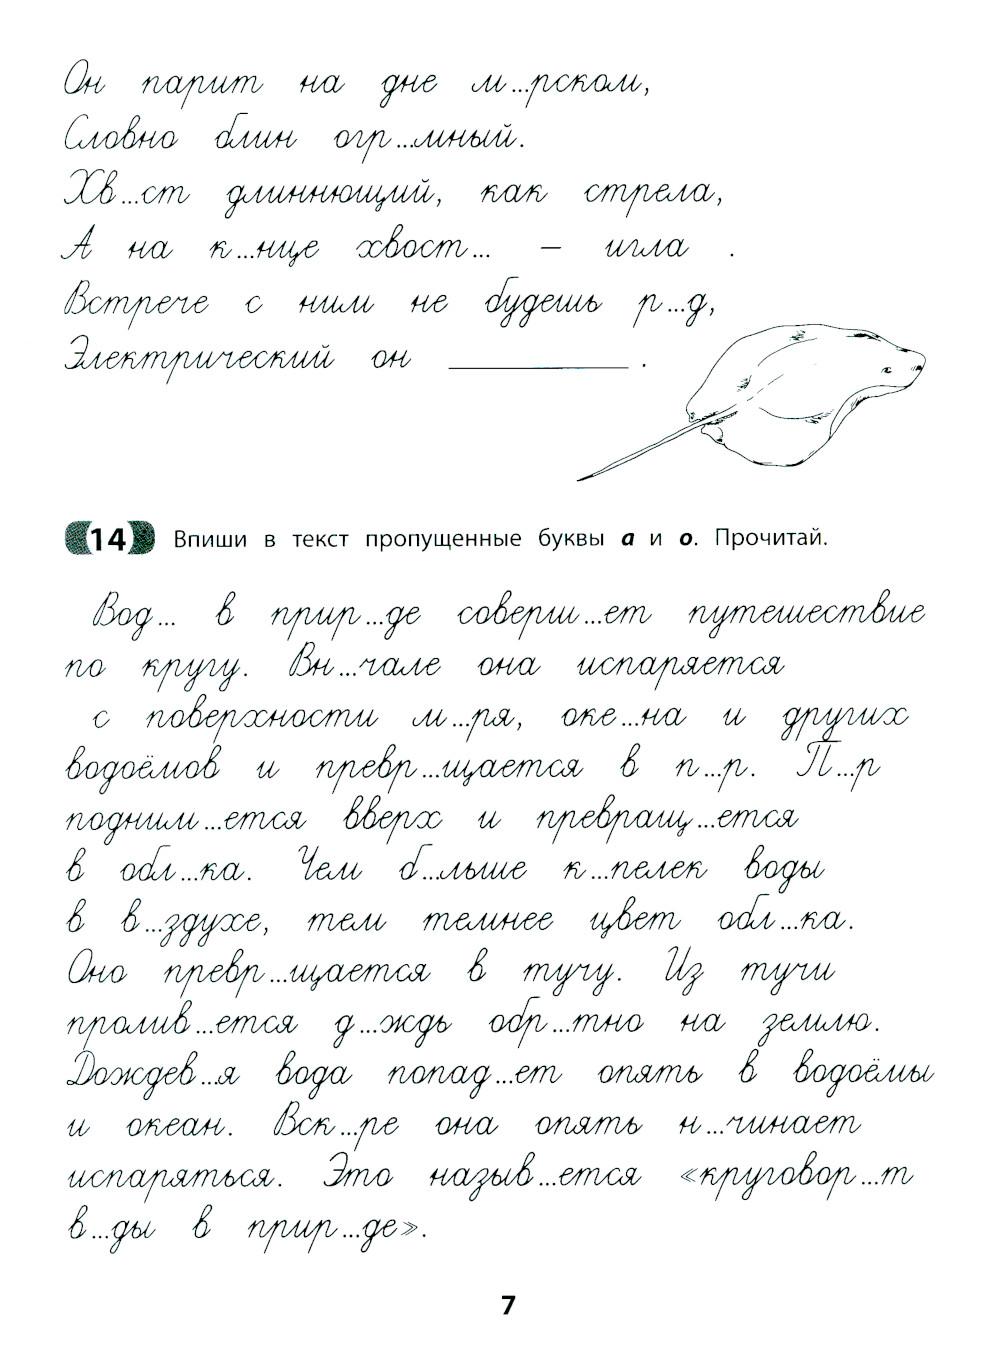 Он парит на дне м...рском,
Словно блин огр...мный.
Хв...ст длиннющий, как стрела,
А на к...нце хвост... – игла .
Встрече с ним не будешь р...д,
Электрический он __________ .
14 Впиши в текст пропущенные буквы а и о. Прочитай.
Вод... в прир...де соверш...ет путешествие
по кругу. Вн...чале она испаряется
с поверхности м...ря, оке...на и других
водоёмов и превр...щается в п...р. П...р
подним...ется вверх и превращ...ется
в обл...ка. Чем б...льше к...пелек воды
в в...здухе, тем темнее цвет обл...ка.
Оно превр...щается в тучу. Из тучи
пролив...ется д...ждь обр...тно на землю.
Дождев...я вода попад...ет опять в водоёмы
и океан. Вск...ре она опять н...чинает
испаряться. Это назыв...ется «круговор...т
в...ды в прир...де».
7